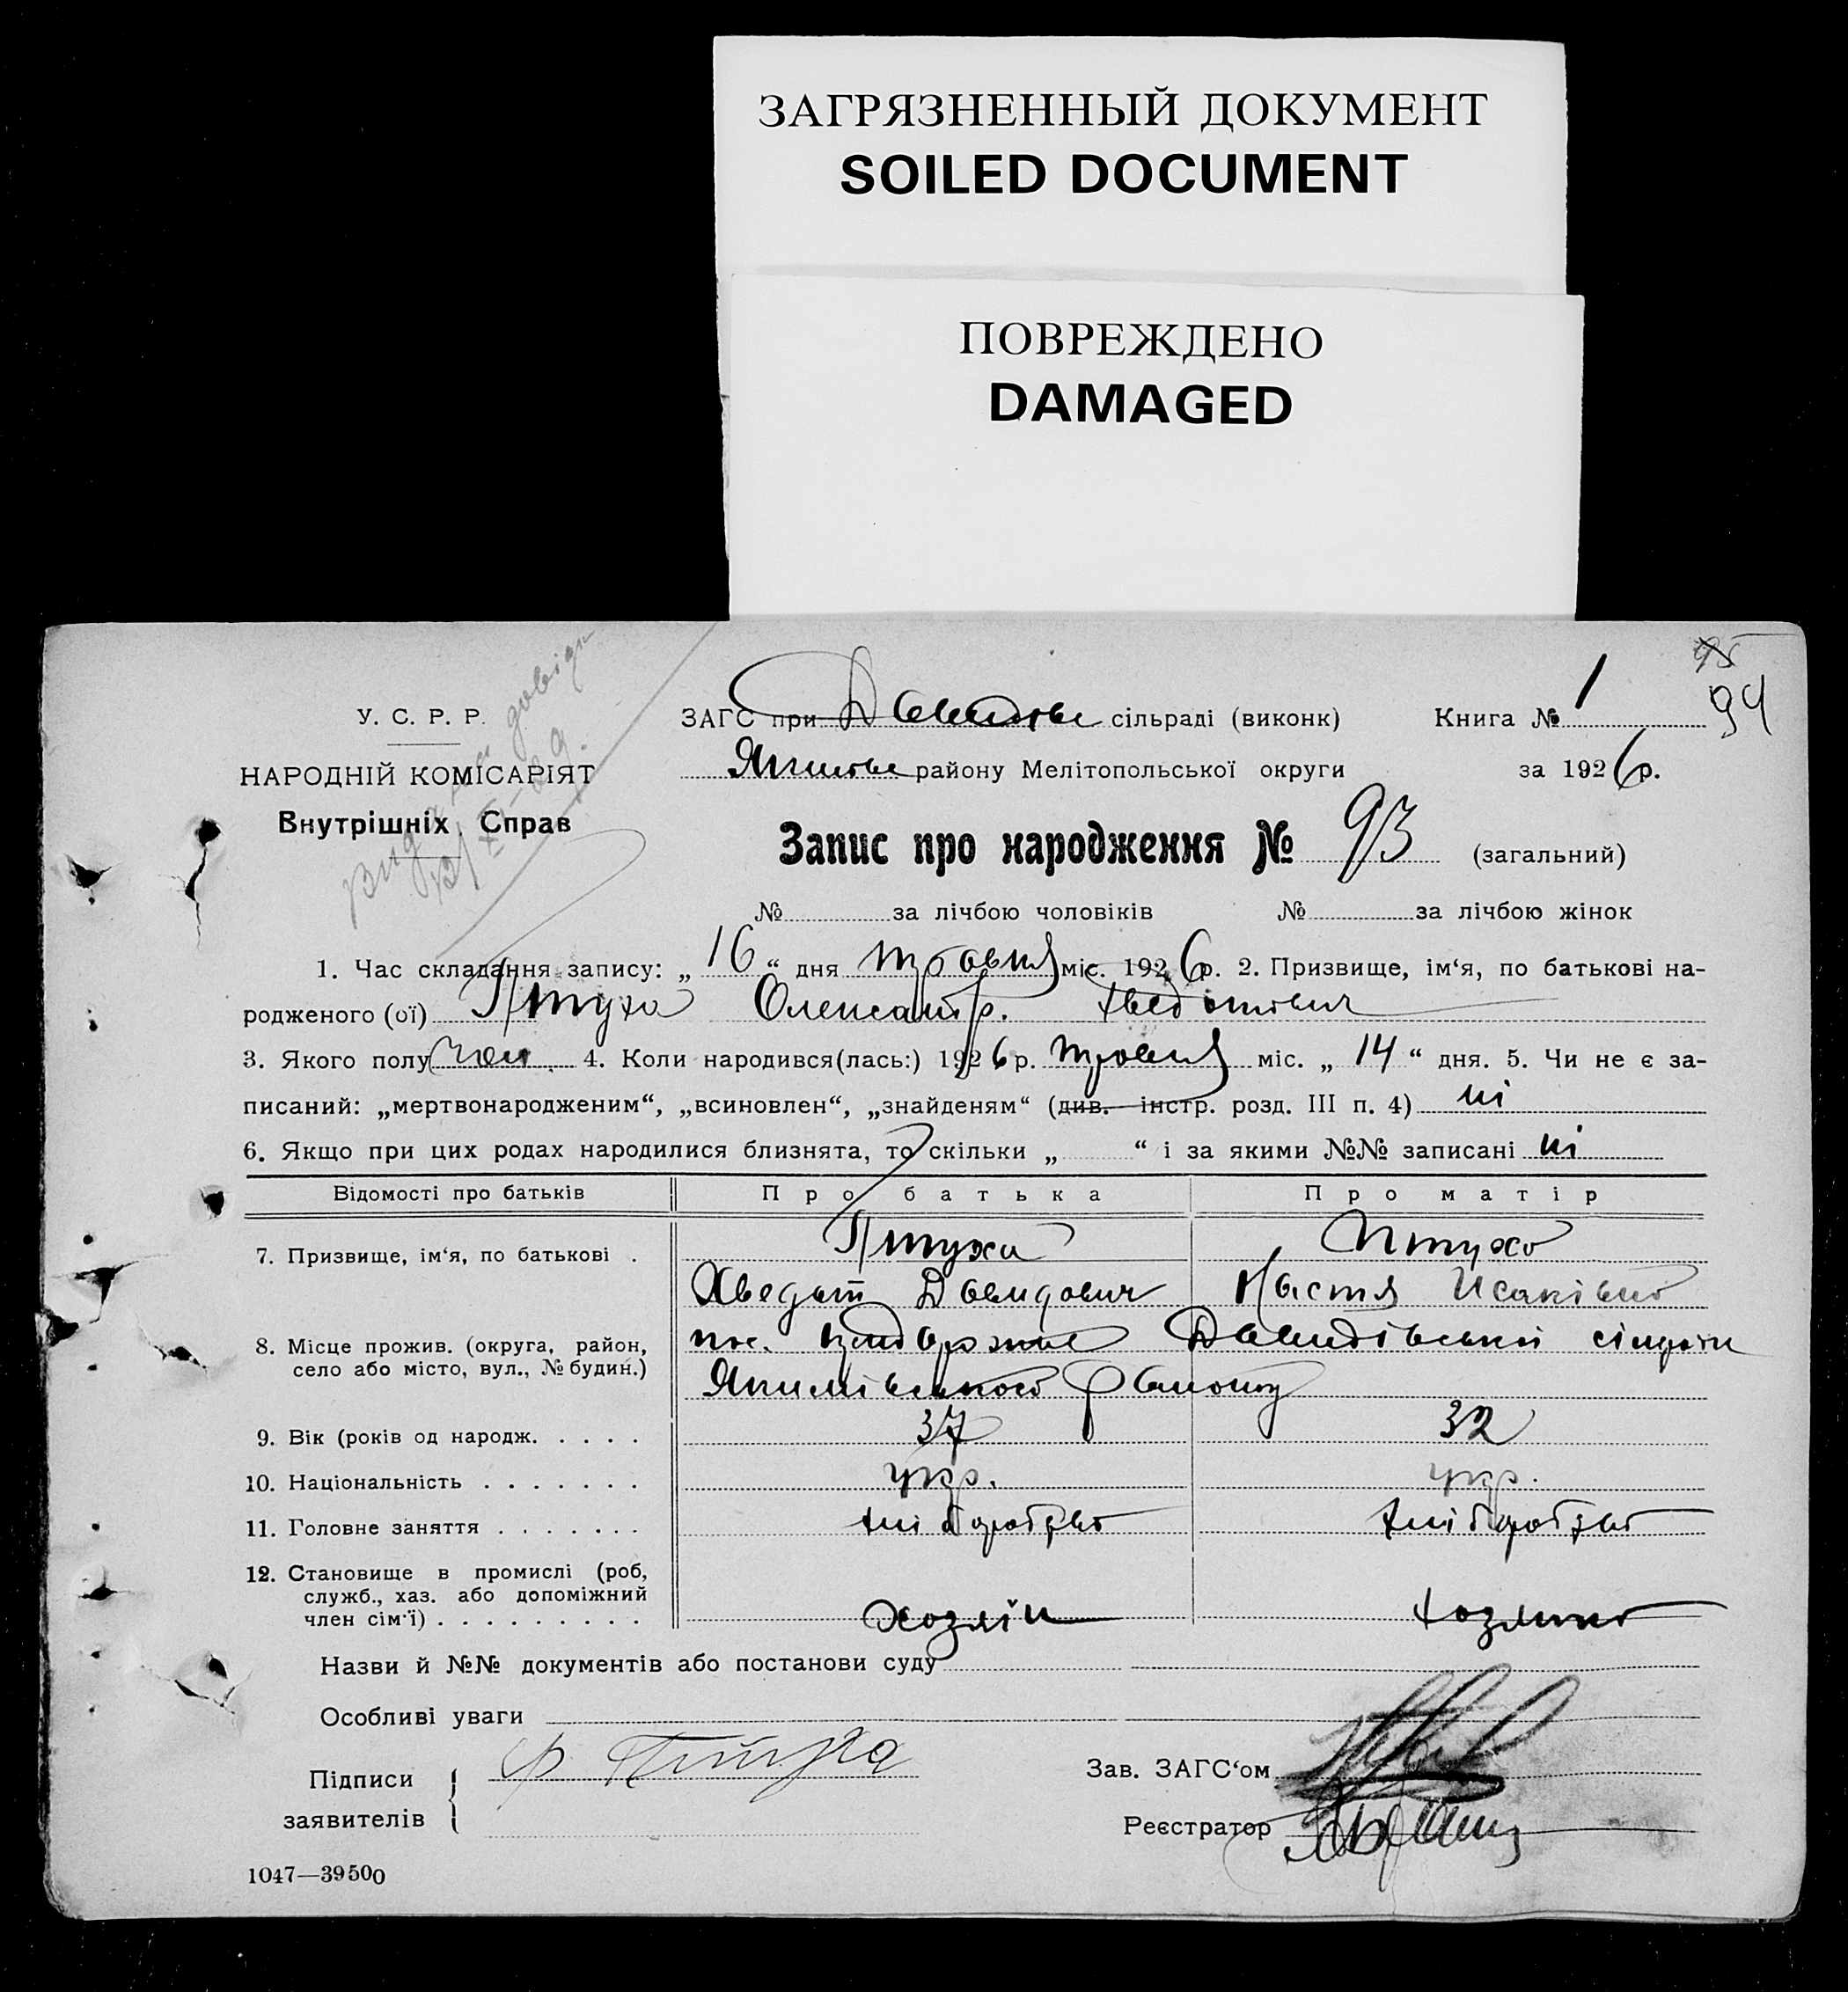 ЗАГРЯЗНЕННЫЙ ДОКУМЕНТ
SOILED DOCUMENT
ПОВРЕЖДЕНО
DAMAGED
95
94
У. С. Р. Р.
ЗАГС при сільраді (виконк) Книга № 1
НАРОДНІЙ КОМІСАРІЯТ
району Мелітопольської округи за 1926 р.
Внутрішніх Справ
Запис про народження № 93 (загальний)
№ за лічбою чоловіків № за лічбою жінок
1. Час складання запису: „16“ дня травня міс. 1926 р. 2. Призвище, ім‘я, по батькові на-
родженого (ої) Птуха Олександр. Хведотович
3. Якого полу чол. 4. Коли народився(лась:) 1926 р. травня міс. „14“ дня. 5. Чи не є за-
писаний: „мертвонародженим“, „всиновлен“, „знайденям“ (див. інстр. розд. III п. 4) ні
6. Якщо при цих родах народилися близнята, то скільки „ “ і за якими №№ записані ні
Відомості про батьків Про батька Про матір
7. Призвище, ім‘я, по батькові . Птуха Птуха
Хведот Давидович Настя Исаківна
8. Місце прожив. (округа, район, село або місто, вул., № будин.) Давидівської сілради
Якимівського району
9. Вік (років од народж. . . . . 37 32
10. Національність . . . . . . . укр. укр.
11. Головне заняття . . . . . . . хліборобство хліборобство
12. Становище в промислі (роб,
служб., хаз. або допоміжний
член сім‘ї) . . . . . . . . . Хозяін хозяйка
Назви й №№ документів або постанови суду
Особливі уваги
Підписи заявителів Ф Птуха
Зав. ЗАГС‘ом
Реєстратор
1047—39500